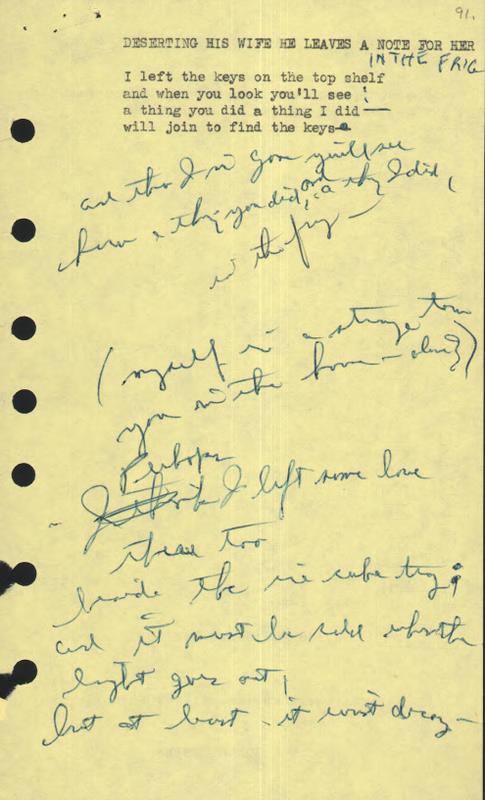 91.
DESERTING HIS WIFE HE LEAVES A NOTE FOR HER
IN THE FRIG
I left the keys on the top shelf
and when you look you'll see :
a thing you did a thing I did —
will join to find the keys
and tho I'm gone you'll see
how a thing you did, and a thing I did,
in the frig —
(myself in a strange town
you in the home — alone?)
Perhaps
I left some love
there too
beside the ice cube tray;
and it must be cold when the
light goes out,
but at least it won't decay —